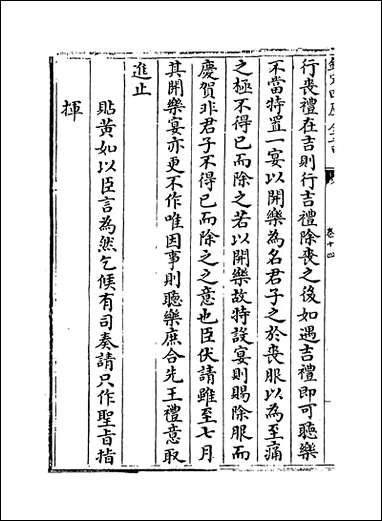 欽定四庫全書
卷十四
行喪禮在吉則行吉禮除喪之後如遇吉禮即可聽樂
不當特置一宴以開樂為名君子之於喪服以為至痛
之極不得已而除之若以開樂故特設宴則賜除服而
慶賀非君子不得已而除之之意也臣伏請雖至七月
其開樂宴亦更不作唯因事則聽樂庶合先王禮意取
進止
貼黃如以臣言為然乞候有司奏請只作聖旨指
揮